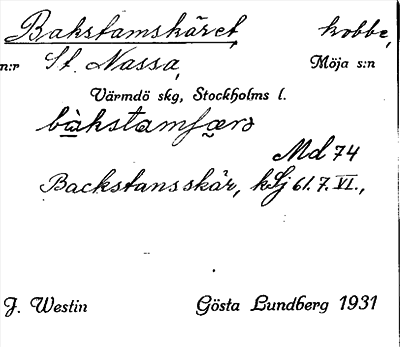 Bakstamskäret, kobbe,
n:r St. Nassa, Möja s:n
Värmdö skg, Stockholms l.
bàkstamʃærə
Md 74
Backstansskär, kSj 61.7.VI.,
J. Westin Gösta Lundberg 1931